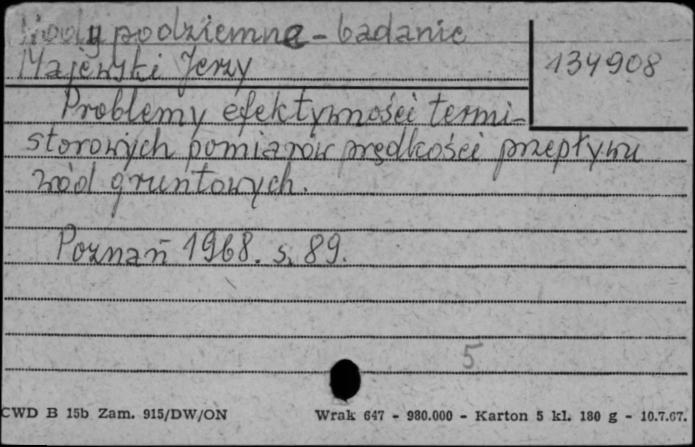 Wody podziemne - badanie
Majewski Jerzy
134908
Problemy efektywności termi-
storowych pomiarów prędkości przepływu
wód gruntowych.
Poznań 1968. s. 89.
5
CWD B 15b Zam. 915/DW/ON Wrak 647 - 980.000 - Karton 5 kl. 180 g - 10.7.67.